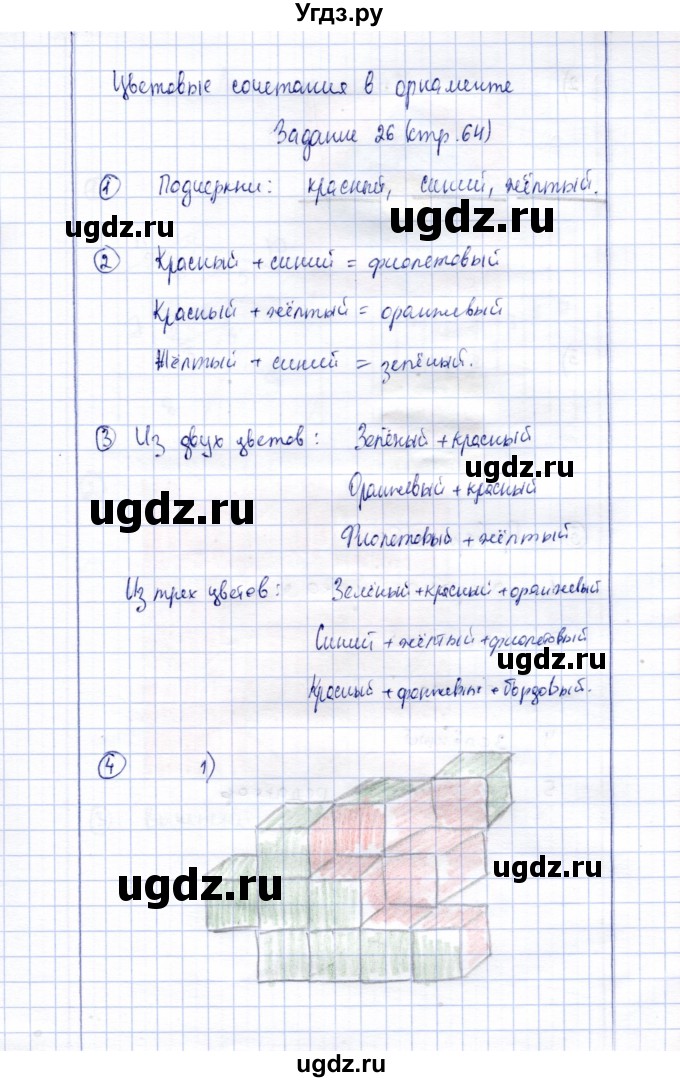 Угдз.ру
Цветовые сочетания в орнаменте
Задание 26 (стр. 64)
① Подчеркни: красный, синий, жёлтый.
ugdz.ru ugdz.ru
② Красный + синий = фиолетовый
Красный + жёлтый = оранжевый
Жёлтый + синий = зелёный.
③ Из двух цветов: Зелёный + красный
ugdz.ru
Оранжевый + красный
ugdz.ru
Фиолетовый + жёлтый
Из трех цветов: Зелёный + красный + оранжевый
Синий + жёлтый + фиолетовый
ugdz.ru
Красный + + бордовый.
④ 1)
ugdz.ru ugdz.ru
ugdz.ru